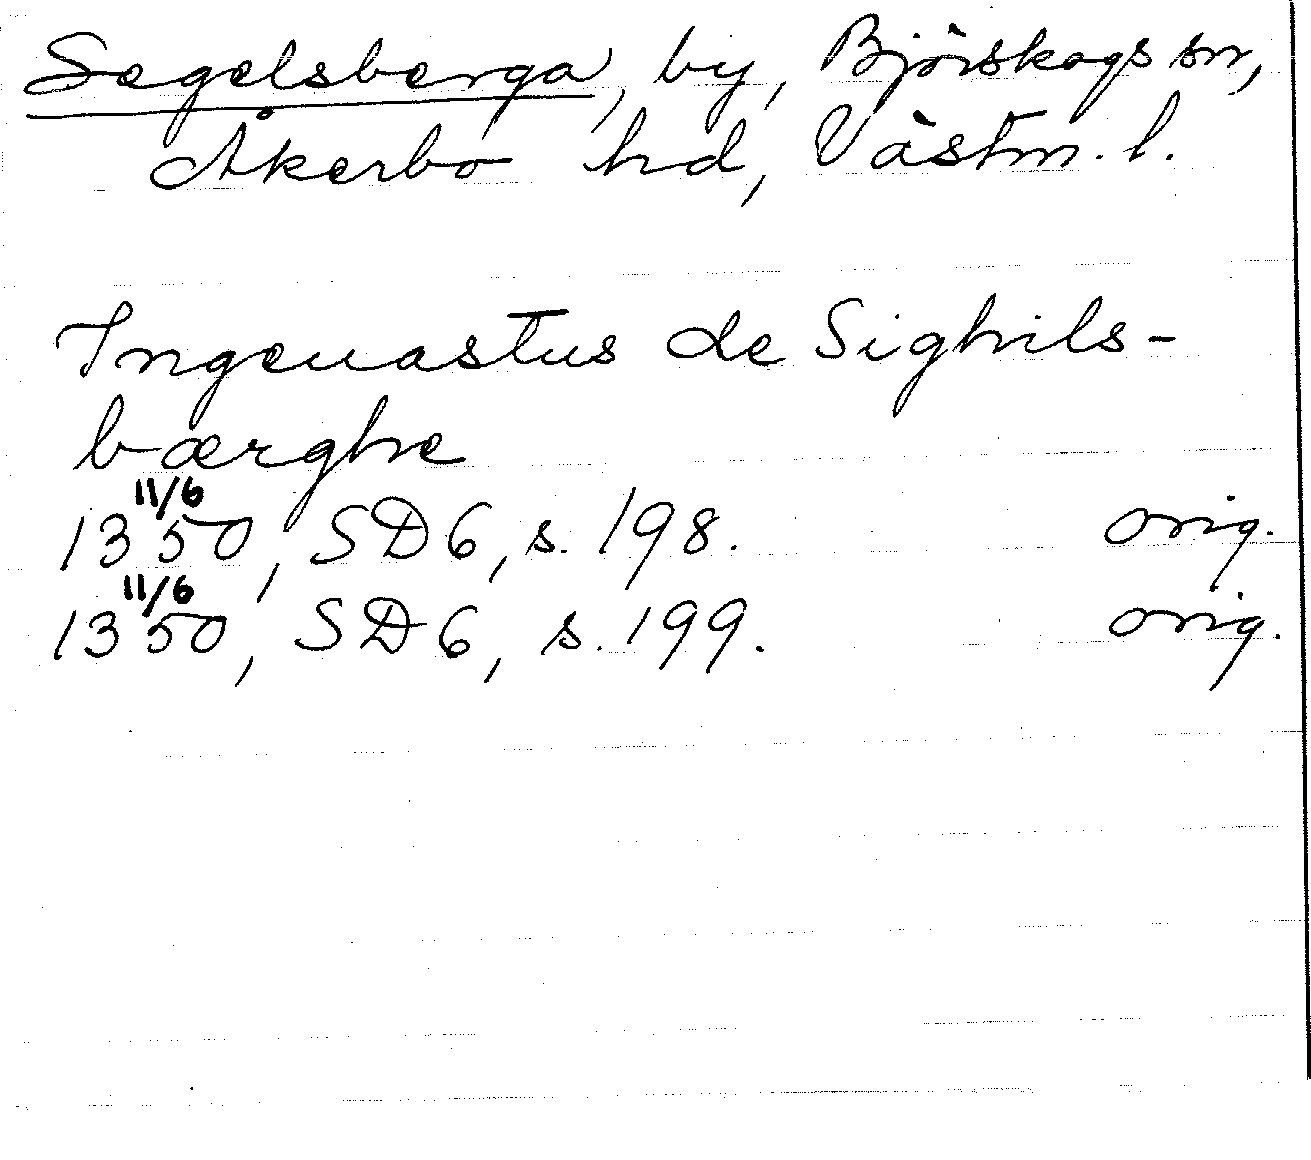 Segelsberga, by, Björskogs sn,
Åkerbo hd, Västm. l.
Ingeuastus de Sighils-
bærghe
11/6
1350, SD 6, s. 198. orig.
11/6
1350, SD 6, s. 199. orig.